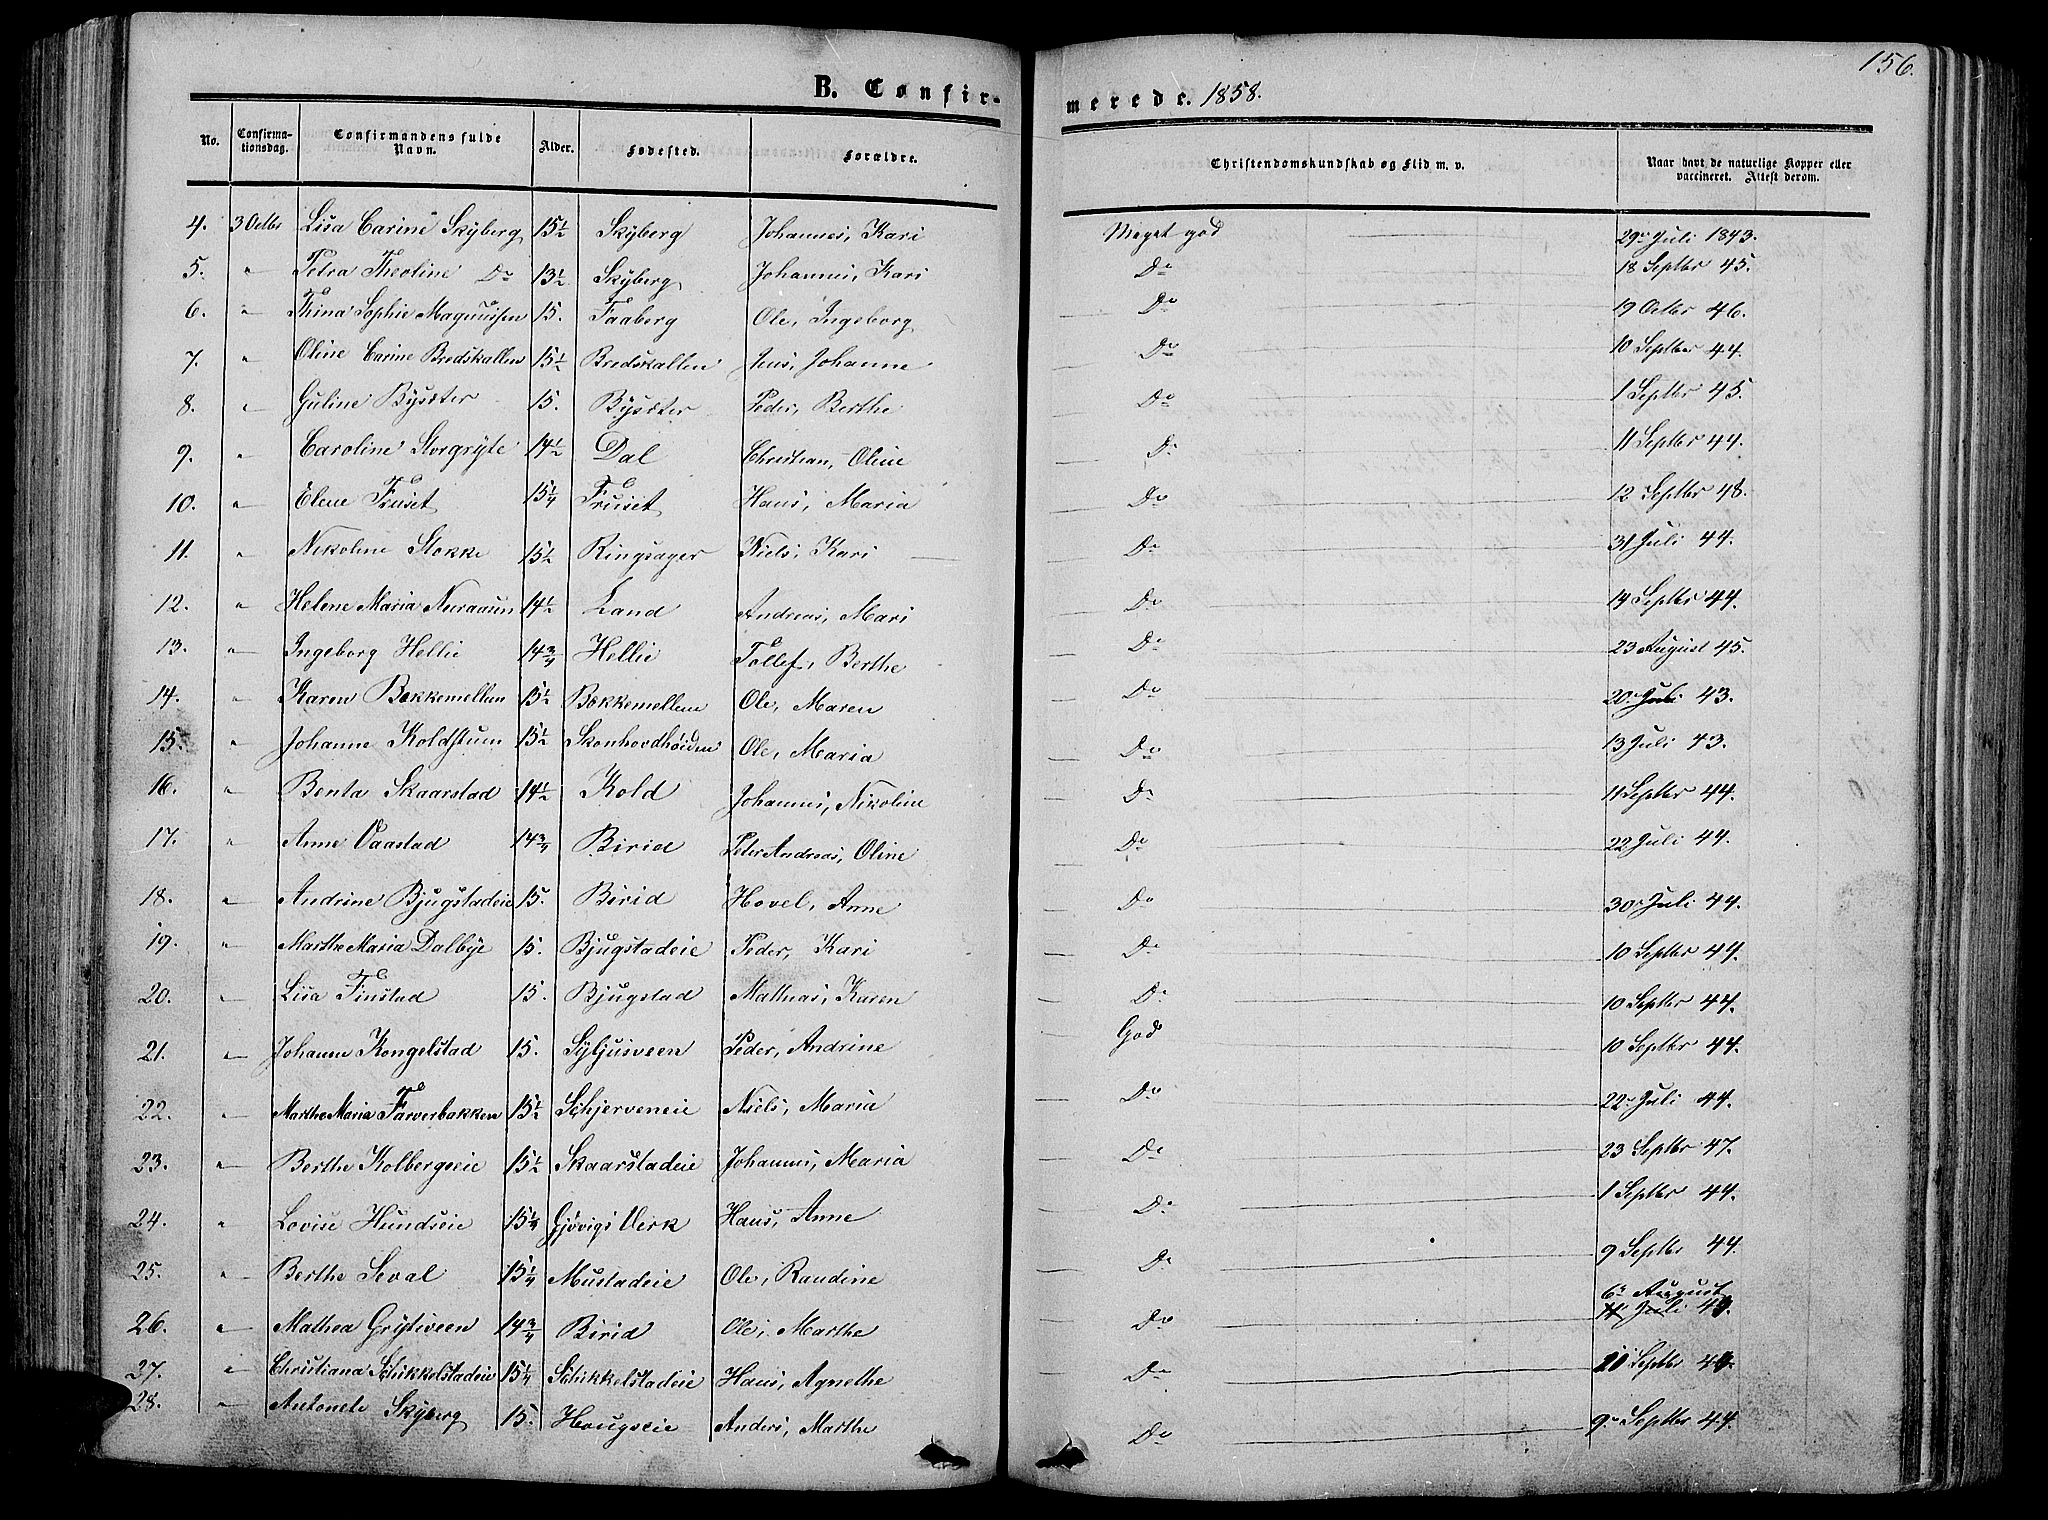 156.
B. Confir- merede. 1858.
No. Confirma-tionsdag. Confirmandens fulde Navn. Alder. Fødested. Forældre. Christendomskundskab og Flid m. v. Naar havt de naturlige Kopper eller vaccineret. Attest derom.
4. 3 Octbr Lisa Carine Skyberg 15½ Skyberg Johannes, Kari Meget god 29 Juli 1843.
5. " Petra Theoline Do 13½ Skyberg Johannes, Kari Do 18 Septbr 45.
6. " Thina Sophie Magnussen 15. Faaberg Ole, Ingeborg Do 19 Octbr 46.
7. " Oline Carine Bredskallen 15½ Bredskallen Jens, Johanne Do 10 Septber 44.
8. " Guline Bysæter 15. Bysæter Peder, Berthe Do 1 Septbr 45.
9. " Caroline Storgryte 14½ Dal Christian, Oline Do 11 Septbr 44.
10. " Elene Fruset 15¼ Fruset Hans, Maria Do 12 Septbr 48.
11. " Nikoline Stokke 15½ Ringsager Niels, Kari Do 31 Juli 44.
12. " Helene Maria Nuraasen 14½ Land Andreas, Mari Do 14 Septbr 44.
13. " Ingeborg Hellie 14¾ Hellie Tollef, Berthe Do 23 August 45.
14. " Karen Bækkemellem 15½ Bækkemellem Ole, Maren Do 20 Juli 43.
15. " Johanne Koldstuen 15½ Skonhovdhøiden Ole, Maria Do 13 Juli 43.
16. " Benta Skaarstad 14½ Kold Johannes, Nikoline Do 11 Septbr 44.
17. " Anne Vaastad 14¾ Birid Peter Andreas, Oline Do 22 Juli 44.
18. " Andrine Bjugstadeie 15. Birid Hovel, Anne Do 30 Juli 44.
19. " Marthe Maria Dalbye 15. Bjugstadeie Peder, Kari Do 10 Septbr 44.
20. " Lisa Finstad 15. Bjugstad Mathias, Karen Do 10 Septbr 44.
21. " Johanne Kongelstad 15. Syljusveen Peder, Andrine God 10 Septbr 44.
22. " Marthe Maria Farverbakken 15½ Schjerveneie Niels, Maria Do 22 Juli 44.
23. " Berthe Kolbergseie 15½ Skaarstadeie Johannes, Maria Do 23 Septbr 47.
24. " Lovise Hundseie 15¼ Gjøvigs Verk Hans, Anne Do 1 Septbr 44.
25. " Berthe Seval 15¼ Mustadeie Ole, Randine Do 9 Septbr 44.
26. " Mathea Grytiveen 14¾ Birid Ole, Marthe Do 6 August Juli
27. " Christiana Schikkelstadeie 15¼ Schikkelstadeie Hans, Agnethe Do Septbr
28. " Antonete Skyberg 15. Hougseie Anders, Marthe Do 9 Septbr 44.